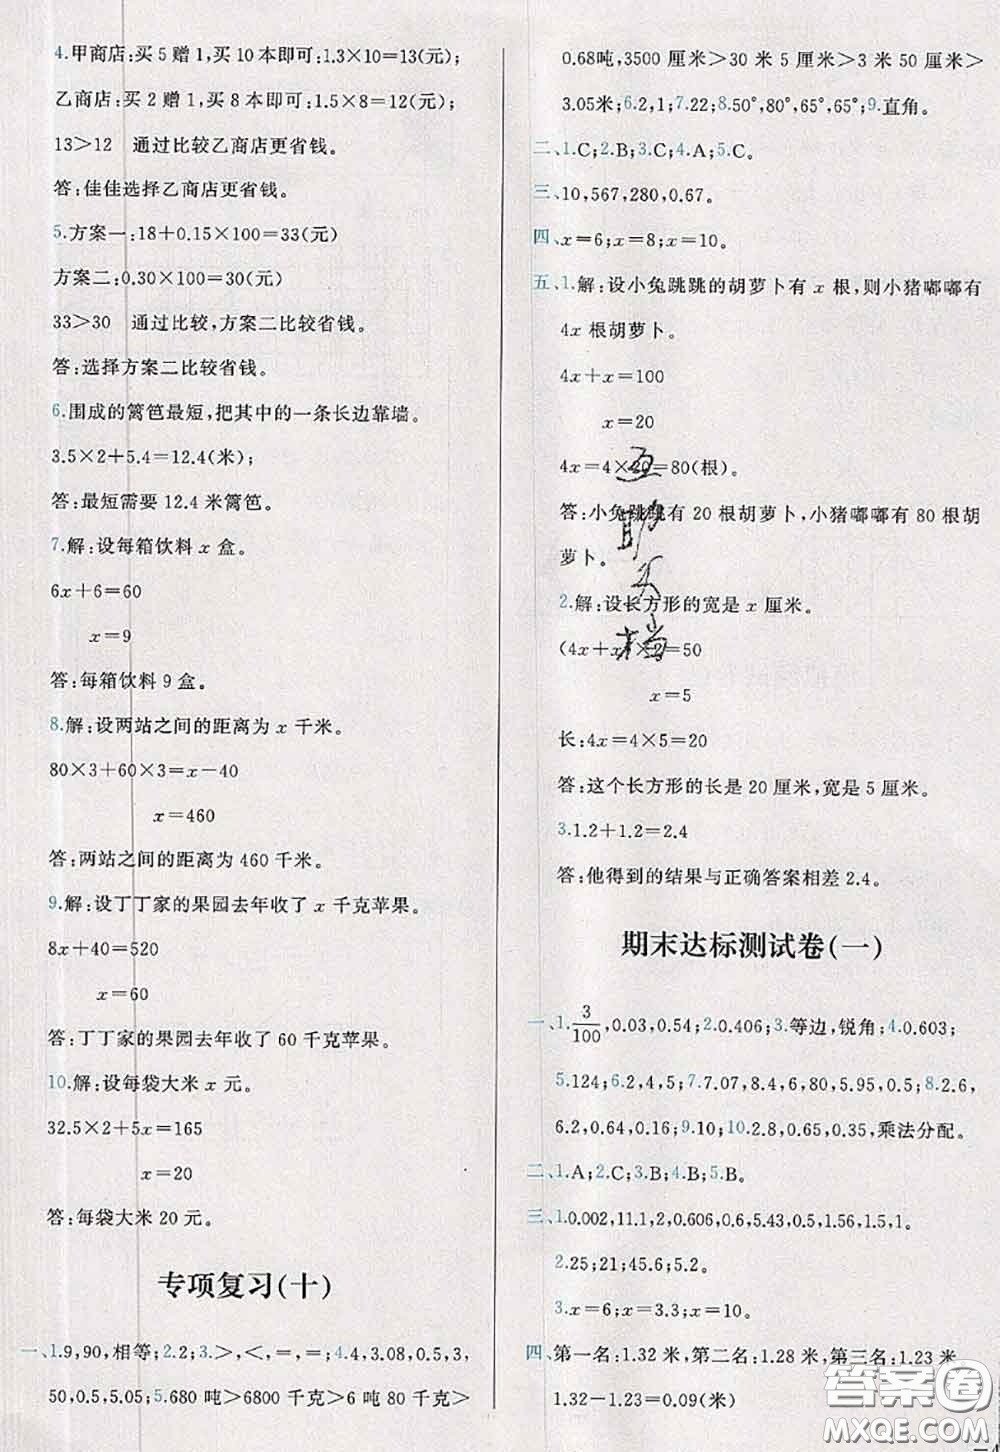 4.甲商店:买5赠1,买10本即可:1.3×10=13(元);
乙商店:买2赠1,买8本即可:1.5×8=12(元);
13>12 通过比较乙商店更省钱。
答:佳佳选择乙商店更省钱。
5.方案一:18+0.15×100=33(元)
方案二:0.30×100=30(元)
33>30 通过比较,方案二比较省钱。
答:选择方案二比较省钱。
6.围成的篱笆最短,把其中的一条长边靠墙。
3.5×2+5.4=12.4(米);
答:最短需要12.4米篱笆。
7.解:设每箱饮料x盒。
6x+6=60
x=9
答:每箱饮料9盒。
8.解:设两站之间的距离为x千米。
80×3+60×3=x-40
x=460
答:两站之间的距离为460千米。
9.解:设丁丁家的果园去年收了x千克苹果。
8x+40=520
x=60
答:丁丁家的果园去年收了60千克苹果。
10.解:设每袋大米x元。
32.5×2+5x=165
x=20
答:每袋大米20元。
专项复习(十)
一、1.9,90,相等;2.2;3.>,<,=,=;4.4,3.08,0.5,3,
50,0.5,5.05;5.680吨>6800千克>6吨80千克>
0.68吨,3500厘米>30米5厘米>3米50厘米>
3.05米;6.2,1;7.22;8.50°,80°,65°,65°;9.直角。
二、1.C;2.B;3.C;4.A;5.C。
三、10,567,280,0.67。
四、x=6;x=8;x=10。
五、1.解:设小兔跳跳的胡萝卜有x根,则小猪嘟嘟有
4x根胡萝卜。
4x+x=100
x=20
4x=4×20=80(根)。
答:小兔跳跳有20根胡萝卜,小猪嘟嘟有80根胡
萝卜。
2.解:设长方形的宽是x厘米。
(4x+x)×2=50
x=5
长:4x=4×5=20
答:这个长方形的长是20厘米,宽是5厘米。
3.1.2+1.2=2.4
答:他得到的结果与正确答案相差2.4。
期末达标测试卷(一)
一、1.3/100,0.03,0.54;2.0.406;3.等边,锐角;4.0.603;
5.124;6.2,4,5;7.7.07,8.4,6,80,0.5;8.2.6,
6.2,0.64,0.16;9.10;10.2.8,0.65,0.35,乘法分配。
二、1.A;2.C;3.B;4.B;5.B。
三、1.0.002,11.1,2,0.606,0.6,5.43,0.5,1.56,1.5,1。
2.25;21;45.6;5.2。
3.x=6;x=3.3;x=10。
四、第一名:1.32米,第二名:1.28米,第三名:1.23米
1.32-1.23=0.09(米)
互助文档
答案圈
MXQE.COM